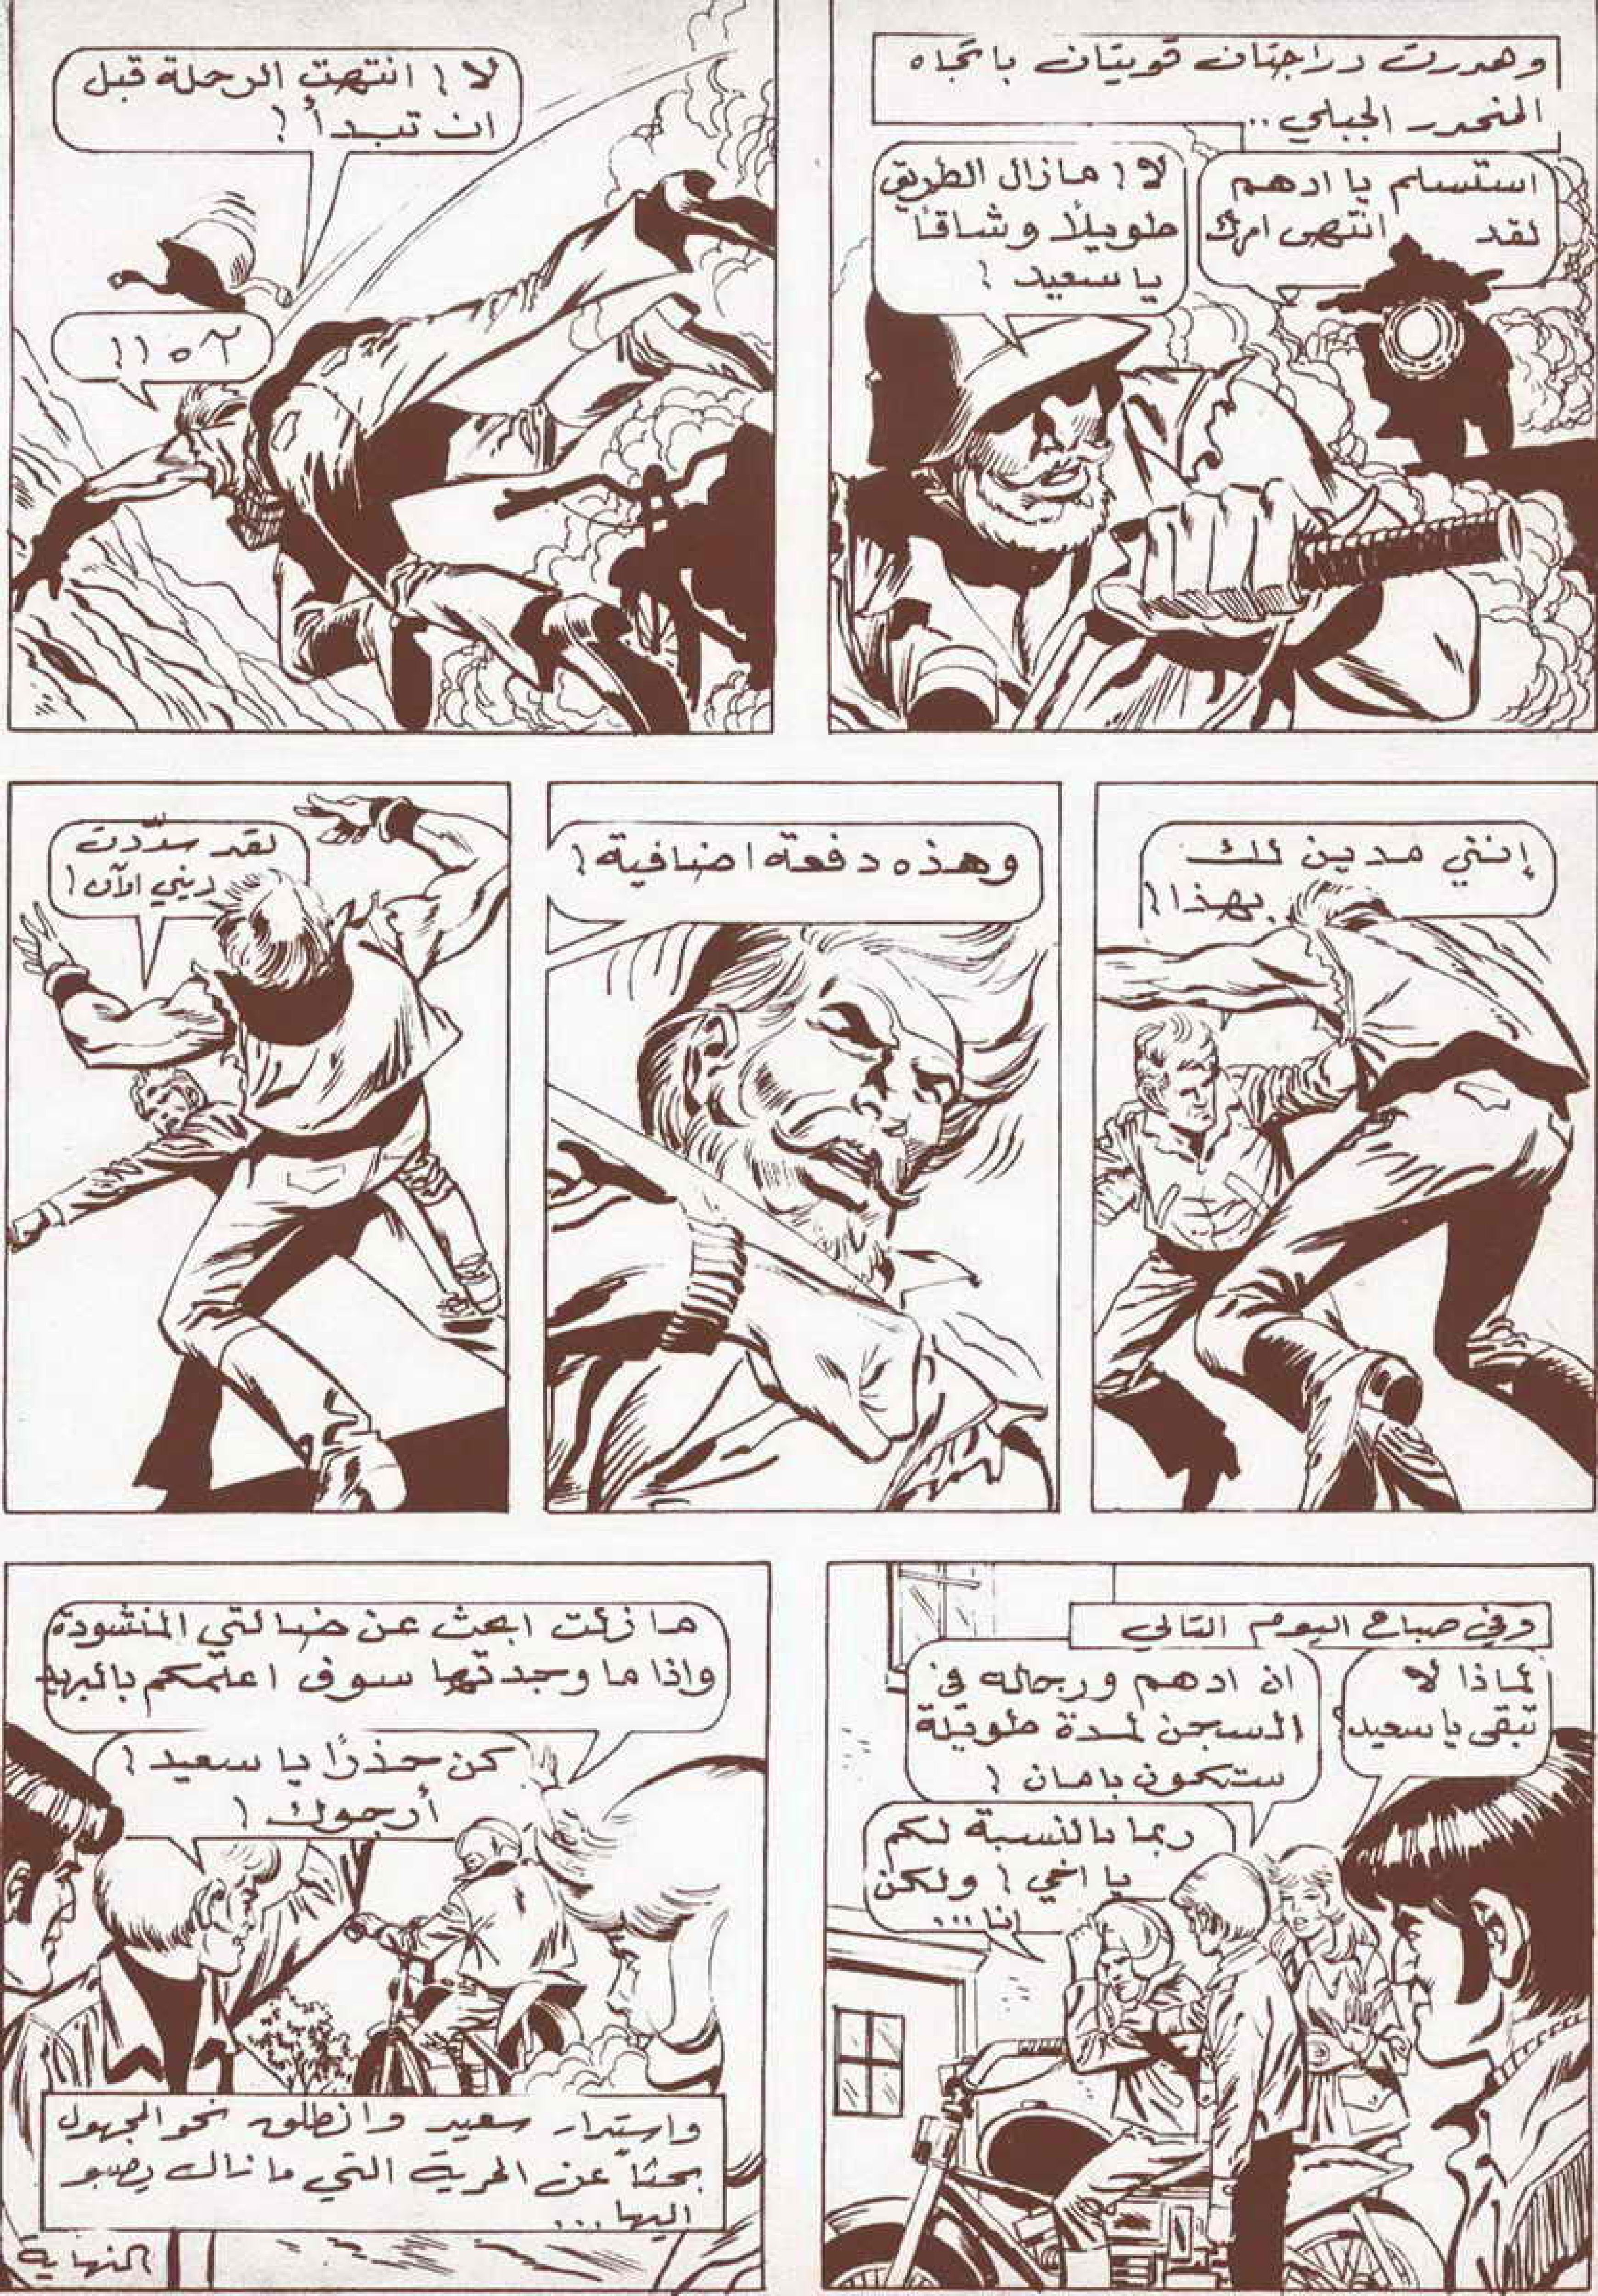 وهدرت دراجتان قويتان باتجاه
المنحدر الجبلي ..
استسلم يا ادهم
لقد انتهى امرك
لا ! مازال الطريق
طويلاً وشاقاً
يا سعيد !
لا ! انتهت الرحلة قبل
ان تبدأ !
آه !!
إنني مدين لك
بهذا !
وهذه دفعة اضافية !
لقد سدّدت
ديني الآن !
وفي صباح اليوم التالي
لماذا لا
تبقى يا سعيد؟
ان ادهم ورجاله في
السجن لمدة طويلة
ستكون بامان !
ربما بالنسبة لكم
يا اخي ! ولكن
انا ...
ما زلت ابحث عن ضالتي المنشودة
واذا ما وجدتها سوف اعلمكم بالبريد
كن حذرًا يا سعيد !
أرجوك !
واستدار سعيد وانطلق نحو المجهول
بحثاً عن الحرية التي ما زال يصبو
اليها ...
النهاية